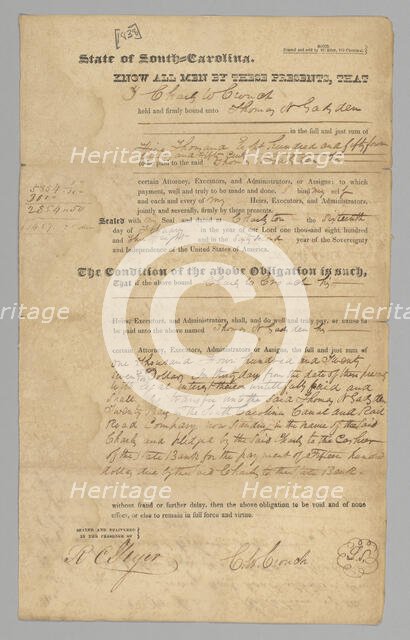 [1838]
BONDS
State of South-Carolina.
KNOW ALL MEN BY THESE PRESENTS, THAT
I Charles W Crouch
held and firmly bound unto Thomas N Gadsden
in the full and just sum of
Five Thousand Eight hundred and fifty four
and fifty Cents
to be paid to the said Thomas
certain Attorney, Executors, and Administrators, or Assigns: to which
payment, well and truly to be made and done. I bind my self
and each and every of my Heirs, Executors, and Administrators,
jointly and severally, firmly by these presents.
Sealed with my Seal and dated at Charleston the Sixteenth
day of February in the year of our Lord one thousand eight hundred
and Thirty Eight and in the Sixty Second year of the Sovereignty
and Independence of the United States of America.
The Condition of the above Obligation is such,
That if the above bound Charles W Crouch his
Heirs, Executors, and Administrators, shall, and do well and truly pay, or cause to
be paid unto the above named Thomas N Gadsden his
certain Attorney, Executors, Administrators or Assigns, the full and just sum of
One thousand Four hundred and Twenty
Dollars in thirty days from the date of these presents
with legal interest thereon until fully paid and
Shall transfer unto the said Thomas N Gadsden
Twenty Shares The South Carolina Canal and Rail
Road Company now standing in the name of the said
Charles and pledged by the said Charles to the Cashier
of the State Bank for the payment of Fifteen hundred
dollars due by the said Charles to the State Bank
without fraud or further delay, then the above obligation to be void and of none
effect, or else to remain in full force and virtue.
SEALED AND DELIVERED
IN THE PRESENCE OF
R C Geyer
C. W. Crouch
L.S.
Heritage Images
Heritage Images
Heritage Images
Heritage Images